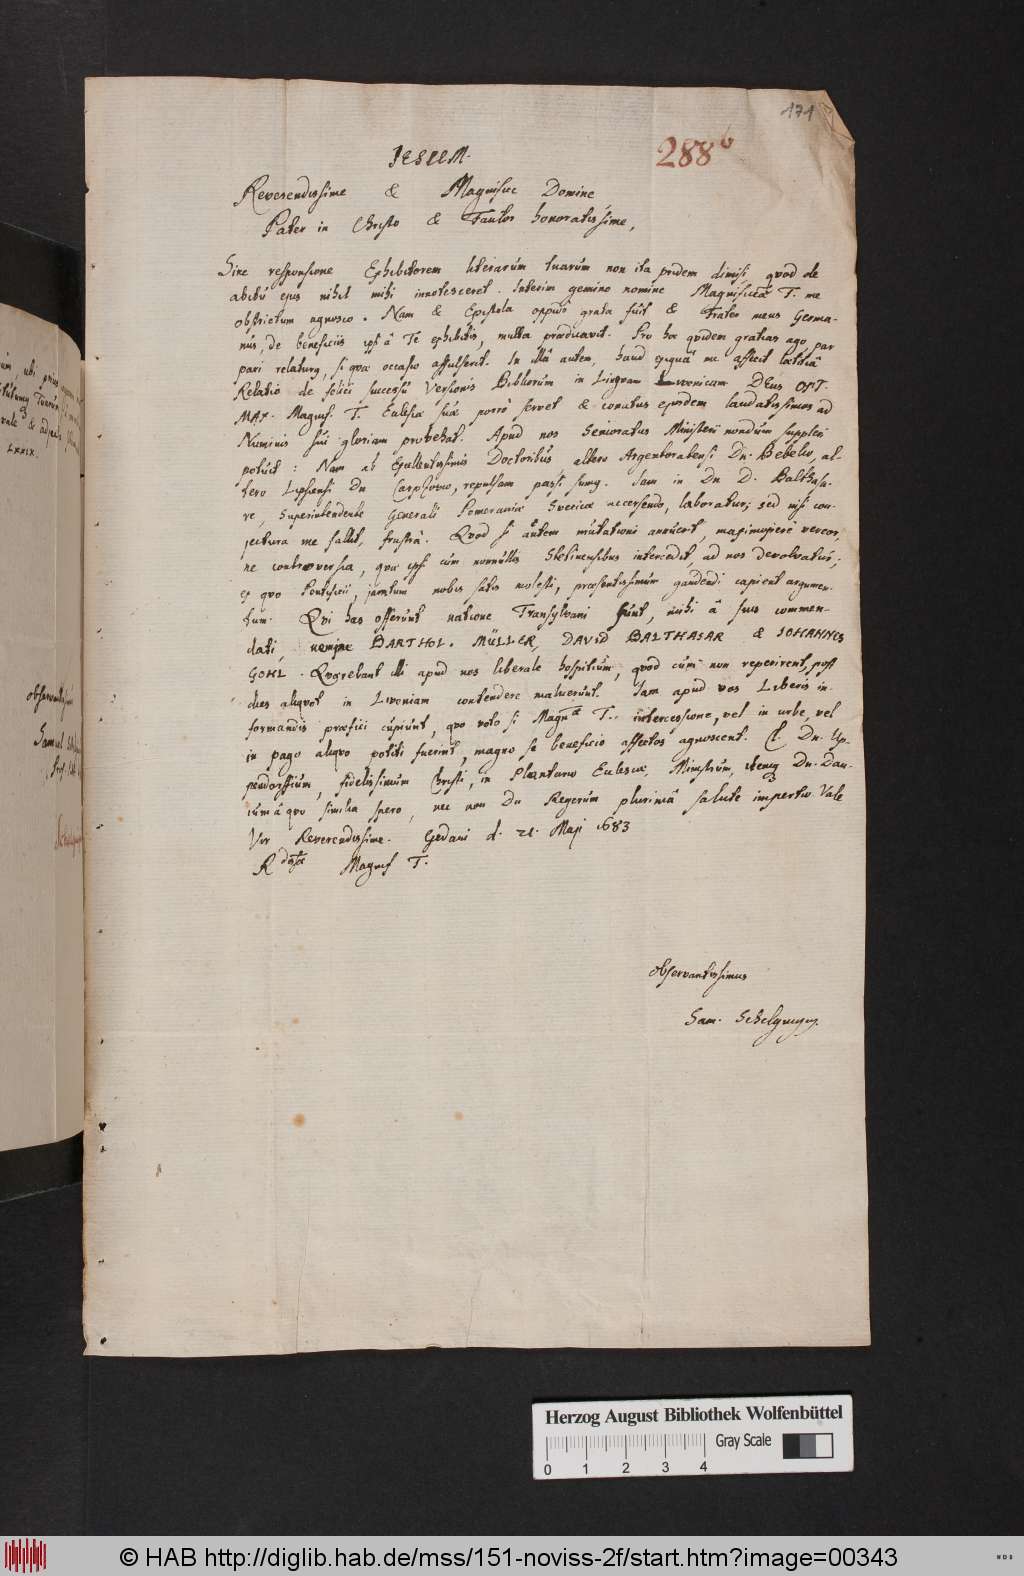 171
288 b
JESUM.
Reverendissime & Magnifice Domine
Pater in Christo & Fautor honoratissime,
Sine responsione Exhibitorem literarum tuarum non ita pridem dimisi quod de
abitu ejus nihil mihi innotesceret. Interim gemino nomine Magnificae T. me
obstrictum agnosco. Nam & Epistola oppidò grata fuit & Frater meus Germa-
nus, de beneficiis ipsi â Te exhibitis, multa praedicavit. Pro hoc quidem gratias ago, par
pari relaturus, si qva occasio affulserit. In illâ autem, haud exiguâ me affecit laetitiâ
Relatio de felici successu Versionis Bibliorum in Lingvam Livonicam. DEus OPT.
MAX. Magnif. T. Eclesiae suae porrò servet & conatus ejusdem laudatissimos ad
Numinis sui gloriam provehat. Apud nos Senioratus Ministerii nondum suppleri
potuit: Nam ab Excellentissimis Doctoribus, altero Argentoratensi Dn. Bebelio, al-
tero Lipsiensi Dn Carpzovio, repulsam passi sumus. Iam in Dn D. Balthasa-
re, Superintendente Generali Pomeraniae Svecicae accersendo, laboratur; sed nisi con-
jectura me fallit, frustrâ. Qvod si autem mutationi annuerit, maximopere vereor,
ne controversia, qvae ipsi cum nonnullis Stetinensibus intercedit, ad nos devolvatur;
ex qvo Pontificii, jamtum nobis satis molesti, praesentissimum gaudendi capient argumen-
tum. Qvi has offerunt natione Transylvani sunt, mihi â suis commen-
dati, nomine BARTHOL. MÜLLER, DAVID BALTHASAR & JOHANNES
GOHL. Qvaerebant illi apud nos liberale hospitium, qvod cum non reperirent, post
dies aliqvot in Livoniam contendere maluerunt. Iam apud vos Liberis in-
formandis praefici cupiunt, qvo voto si Magnae T. intercessione, vel in urbe, vel
in pago aliqvo potiti fuerint, magno se beneficio affectos agnoscent. Cl. Dn. Up-
pendorffium, fidelissimum Christi, in Ecclesia, Ministrum, itemq3 Dn. Dau-
cum â qvo similia spero, nec non Dn Regerum plurimâ salute impertio. Vale
Vir Reverendissime. Gedani d. 21. Maji 1683
R dissae Magnif T.
observantissimus
Sam. Schelguigius.
LXXIX.
Herzog August Bibliothek Wolfenbüttel
Gray Scale
0 1 2 3 4
© HAB http://diglib.hab.de/mss/151-noviss-2f/start.htm?image=00343